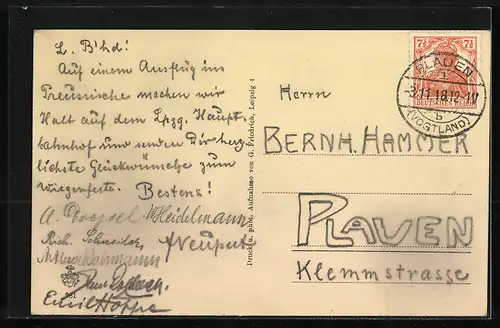 L. B'hd!
Auf einem Ausflug ins
Preussische machen wir
Halt auf dem Lpzg. Haupt
bahnhof und senden Dir herz
lichste Glückwünsche zum
Wiegenfeste. Bestens!
A. Drechsel Heidelmann
Rich. Schneider, Neupert
Emil Hoppe
Druck u. phot. Aufnahme von G. Friedrich, Leipzig 4
7½ 7½
DEUTSCHES REICH
PLAUEN
-3.11.18.12-1N
b
(VOGTLAND)
Herrn
BERNH. HAMMER
PLAUEN
Klemmstrasse